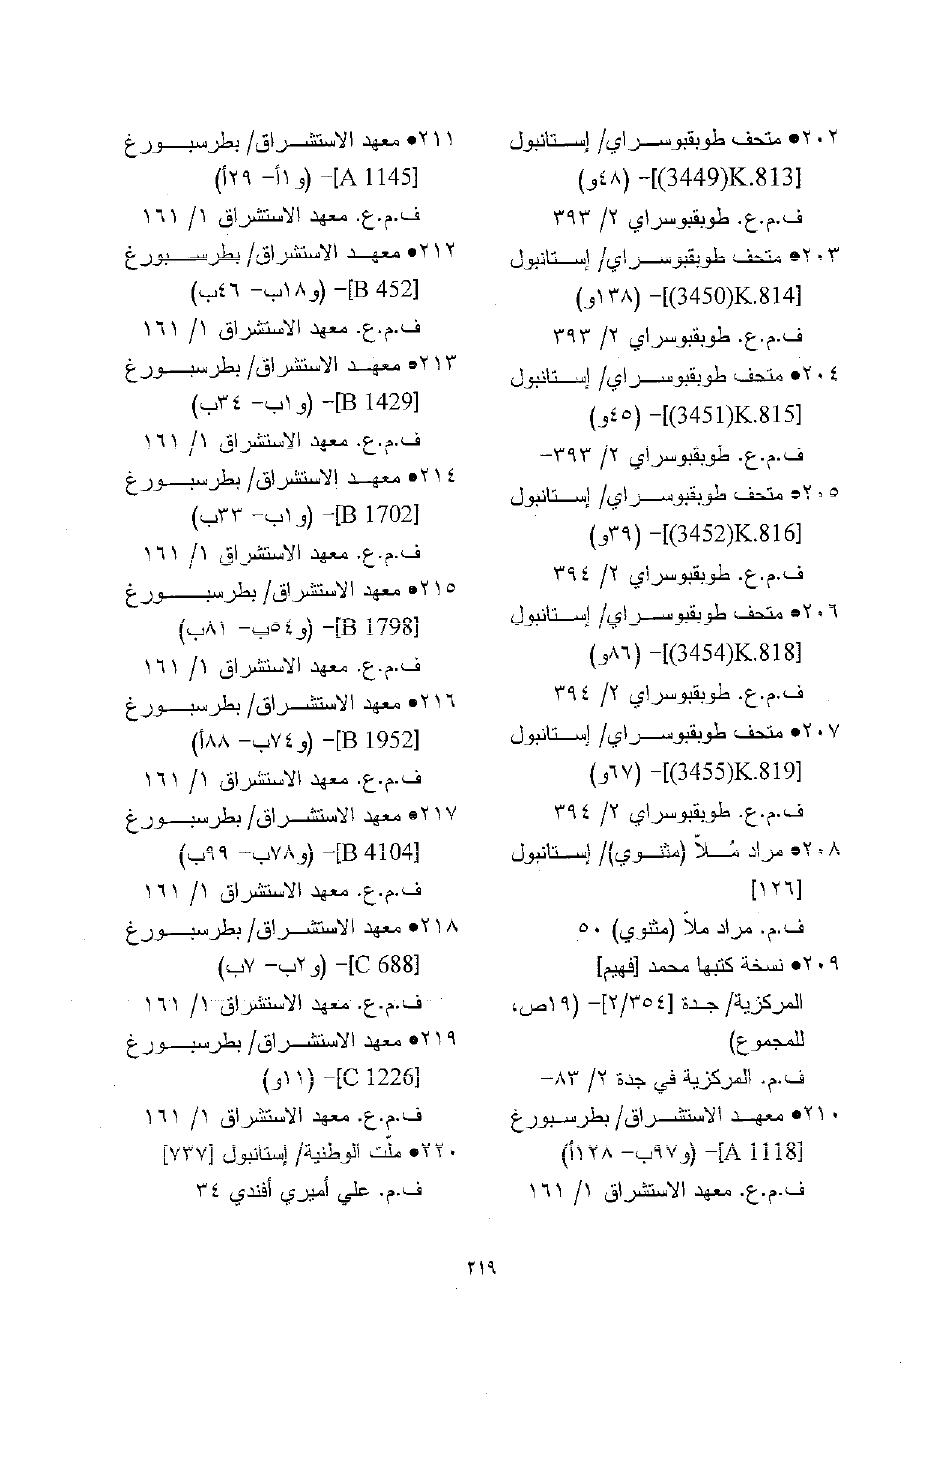 ٢٠٢● متحف طوبقبوسراي/ إستانبول
[K.813(3449)]- (٤٨و)
ف.م.ع. طوبقبوسراي ٢/ ٣٩٣
٢٠٣● متحف طوبقبوسراي/ إستانبول
[K.814(3450)]- (١٣٨و)
ف.م.ع. طوبقبوسراي ٢/ ٣٩٣
٢٠٤● متحف طوبقبوسراي/ إستانبول
[K.815(3451)]- (٤٥و)
ف.م.ع. طوبقبوسراي ٢/ ٣٩٣-
٢٠٥● متحف طوبقبوسراي/ إستانبول
[K.816(3452)]- (٣٩و)
ف.م.ع. طوبقبوسراي ٢/ ٣٩٤
٢٠٦● متحف طوبقبوسراي/ إستانبول
[K.818(3454)]- (٨٦و)
ف.م.ع. طوبقبوسراي ٢/ ٣٩٤
٢٠٧● متحف طوبقبوسراي/ إستانبول
[K.819(3455)]- (٦٧و)
ف.م.ع. طوبقبوسراي ٢/ ٣٩٤
٢٠٨● مراد مُلاّ (مثنوي)/ إستانبول
[١٢٦]
ف.م. مراد ملاّ (مثنوي) ٥٠
٢٠٩● نسخة كتبها محمد [فهيم]
المركزية/ جدة [٢/٣٥٤]- (١٩ص،
للمجموع)
ف.م. المركزية في جدة ٢/ ٨٣-
٢١٠● معهد الاستشراق/ بطرسبورغ
[A 1118]- (و٩٧ب- ١٢٨أ)
ف.م.ع. معهد الاستشراق ١/ ١٦١
٢١١● معهد الاستشراق/ بطرسبورغ
[A 1145]- (و١أ- ٢٩أ)
ف.م.ع. معهد الاستشراق ١/ ١٦١
٢١٢● معهد الاستشراق/ بطرسبورغ
[B 452]- (و١٨ب- ٤٦ب)
ف.م.ع. معهد الاستشراق ١/ ١٦١
٢١٣● معهد الاستشراق/ بطرسبورغ
[B 1429]- (و١ب- ٣٤ب)
ف.م.ع. معهد الاستشراق ١/ ١٦١
٢١٤● معهد الاستشراق/ بطرسبورغ
[B 1702]- (و١ب- ٣٣ب)
ف.م.ع. معهد الاستشراق ١/ ١٦١
٢١٥● معهد الاستشراق/ بطرسبورغ
[B 1798]- (و٥٤ب- ٨١ب)
ف.م.ع. معهد الاستشراق ١/ ١٦١
٢١٦● معهد الاستشراق/ بطرسبورغ
[B 1952]- (و٧٤ب- ٨٨أ)
ف.م.ع. معهد الاستشراق ١/ ١٦١
٢١٧● معهد الاستشراق/ بطرسبورغ
[B 4104]- (و٧٨ب- ٩٩ب)
ف.م.ع. معهد الاستشراق ١/ ١٦١
٢١٨● معهد الاستشراق/ بطرسبورغ
[C 688]- (و٢ب- ٧ب)
ف.م.ع. معهد الاستشراق ١/ ١٦١
٢١٩● معهد الاستشراق/ بطرسبورغ
[C 1226]- (١١و)
ف.م.ع. معهد الاستشراق ١/ ١٦١
٢٢٠● ملّت الوطنية/ إستانبول [٧٣٧]
ف.م. علي أميري أفندي ٣٤
٢١٩